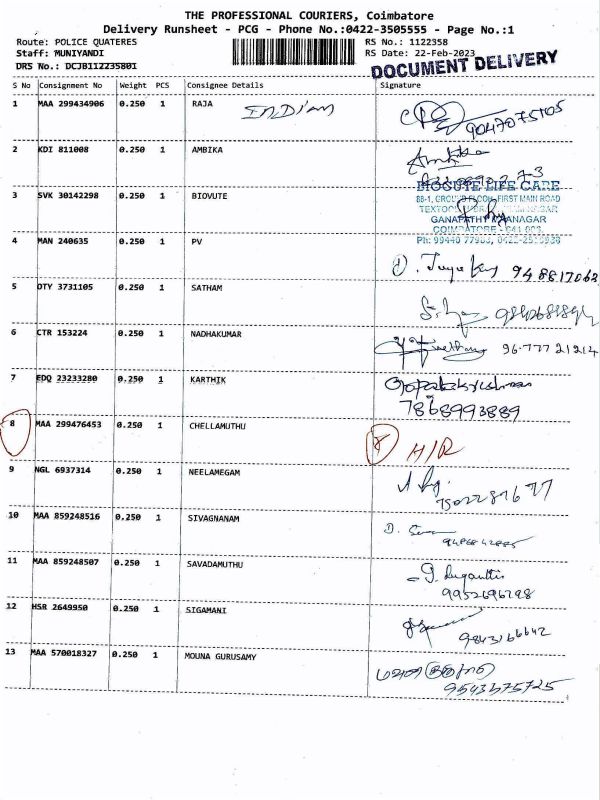 THE PROFESSIONAL COURIERS, Coimbatore
Delivery Runsheet - PCG - Phone No.:0422-3505555 - Page No.:1
Route: POLICE QUATERES RS No.: 1122358
Staff: MUNIYANDI RS Date: 22-Feb-2023
DRS No.: DCJB112235801 DOCUMENT DELIVERY
S No Consignment No Weight PCS Consignee Details Signature
1 MAA 299434906 0.250 1 RAJA INDIAN 9047075105
2 KDI 811008 0.250 1 AMBIKA Ambika
BIOCUTE LIFE CARE
3 SVK 30142298 0.250 1 BIOVUTE 88-1, GROUND FLOOR, FIRST MAIN ROAD
GANAPATHY MAANAGAR
COIMBATORE - 641 006.
4 MAN 240635 0.250 1 PV Ph: 99440 77903,
948817062
5 OTY 3731105 0.250 1 SATHAM
6 CTR 153224 0.250 1 NADHAKUMAR 96777 21214
7 EDQ 23233280 0.250 1 KARTHIK Gopalakrishnan
7868993889
8 MAA 299476453 0.250 1 CHELLAMUTHU H/R
9 NGL 6937314 0.250 1 NEELAMEGAM
10 MAA 859248516 0.250 1 SIVAGNANAM
11 MAA 859248507 0.250 1 SAVADAMUTHU
9952696298
12 HSR 2649950 0.250 1 SIGAMANI 9843166642
13 MAA 570018327 0.250 1 MOUNA GURUSAMY
9543575725